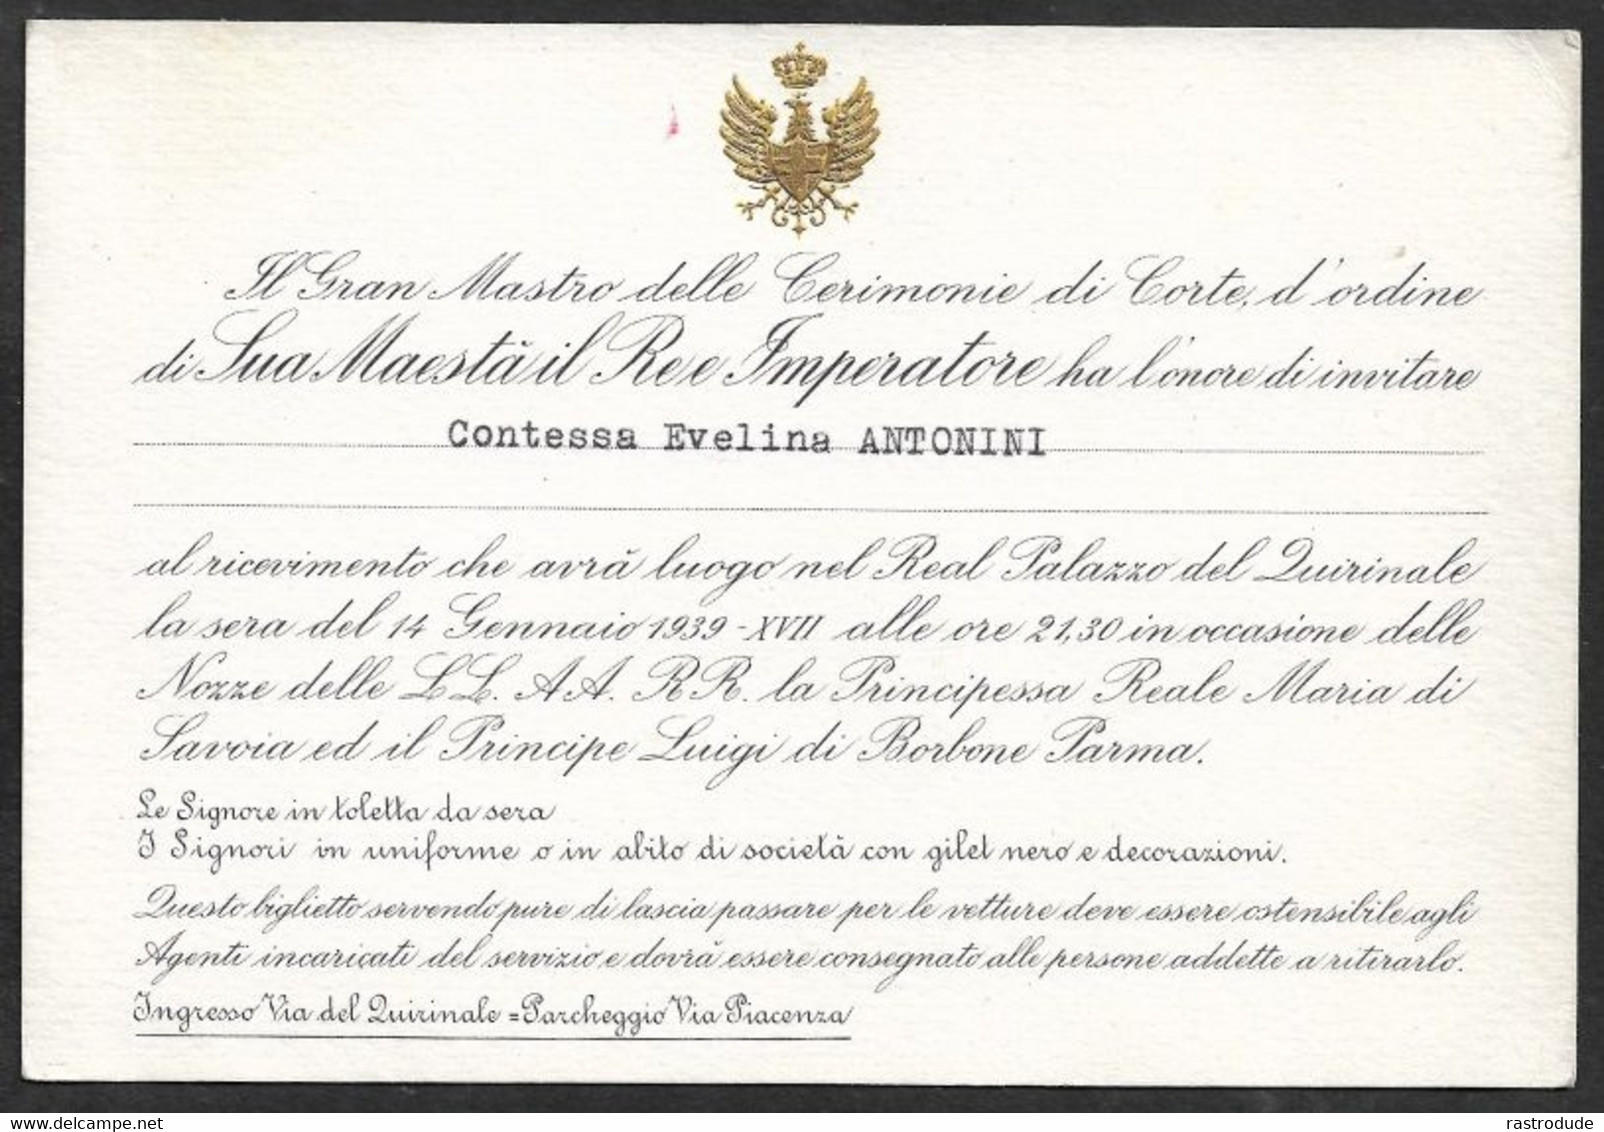 Il Gran Mastro delle Cerimonie di Corte, d'ordine
di Sua Maestà il Re e Imperatore ha l'onore di invitare
Contessa Evelina ANTONINI
al ricevimento che avrà luogo nel Real Palazzo del Quirinale
la sera del 14 Gennaio 1939-XVII alle ore 21,30 in occasione delle
Nozze delle LL. AA. RR. la Principessa Reale Maria di
Savoia ed il Principe Luigi di Borbone Parma.
Le Signore in toletta da sera
I Signori in uniforme o in abito di società con gilet nero e decorazioni.
Questo biglietto servendo pure di lascia passare per le vetture deve essere ostensibile agli
Agenti incaricati del servizio e dovrà essere consegnato alle persone addette a ritirarlo.
Ingresso Via del Quirinale = Parcheggio Via Piacenza
rastrodude